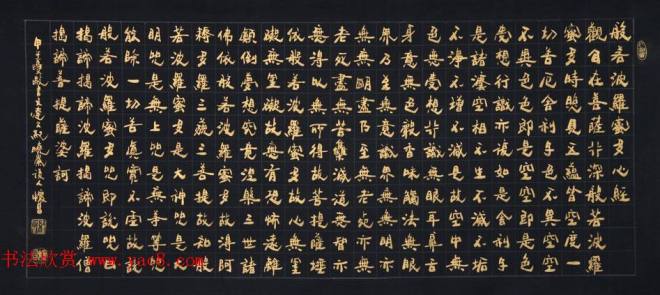 般若波羅蜜多心經
觀自在菩薩行深般若波羅
蜜多時照見五蘊皆空度一
切苦厄舍利子色不異空空
不異色色即是空空即是色
受想行識亦復如是舍利子
是諸法空相不生不滅不垢
不淨不增不減是故空中無
色無受想行識無眼耳鼻舌
身意無色聲香味觸法無眼
界乃至無意識界無無明亦
無無明盡乃至無老死亦無
老死盡無苦集滅道無智亦
無得以無所得故菩提薩埵
依般若波羅蜜多故心無罣
礙無罣礙故無有恐怖遠離
顛倒夢想究竟涅槃三世諸
佛依般若波羅蜜多故得阿
耨多羅三藐三菩提故知般
若波羅蜜多是大神咒是大
明咒是無上咒是無等等咒
能除一切苦真實不虛故說
般若波羅蜜多咒即說咒曰
揭諦揭諦波羅揭諦波羅僧
揭諦菩提薩婆訶
书法欣赏 www.yac8.com